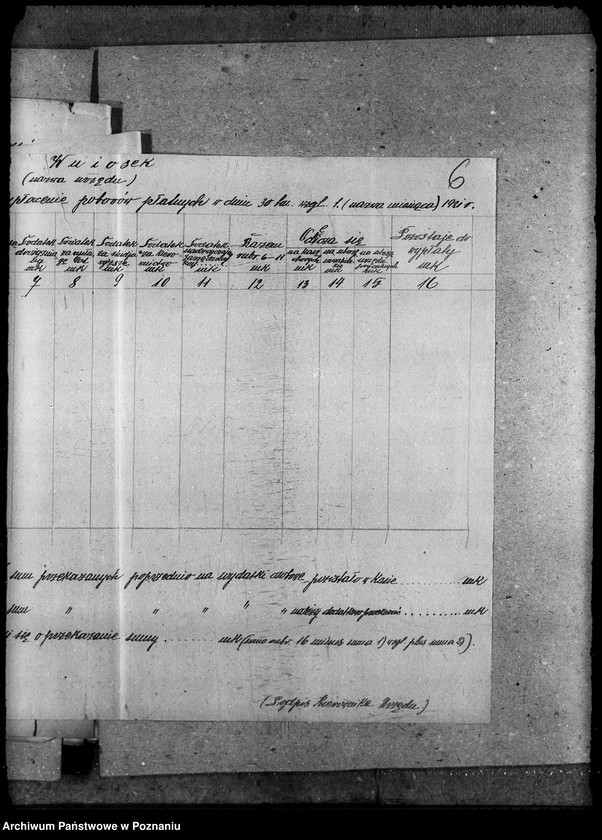 6
W n i o s e k
(nazwa urzędu)
płacenie poborów płatnych w dniu 30 bm. wzgl. 1. (nazwa miesiąca) 1921 r.
Dodatek drożyźniany mk
Dodatek za mk
Dodatek za studja wyższe mk
Dodatek za kierownictwo mk
Dodatek mk
Razem rubr. 6-11 mk
Odciąga się
na kasę chorych mk
na mk
na mk
Pozostaje do wypłaty mk
7 8 9 10 11 12 13 14 15 16
sum przekazanych poprzednio na wydatki osobowe pozostało w kasie .......... mk
sum " " " " " należy .......... mk
się o przekazanie sumy ........ mk (suma rubr. 16 minus suma 1) wzgl. plus suma 2).
(Podpis Kierownika Urzędu)
Archiwum Państwowe w Poznaniu